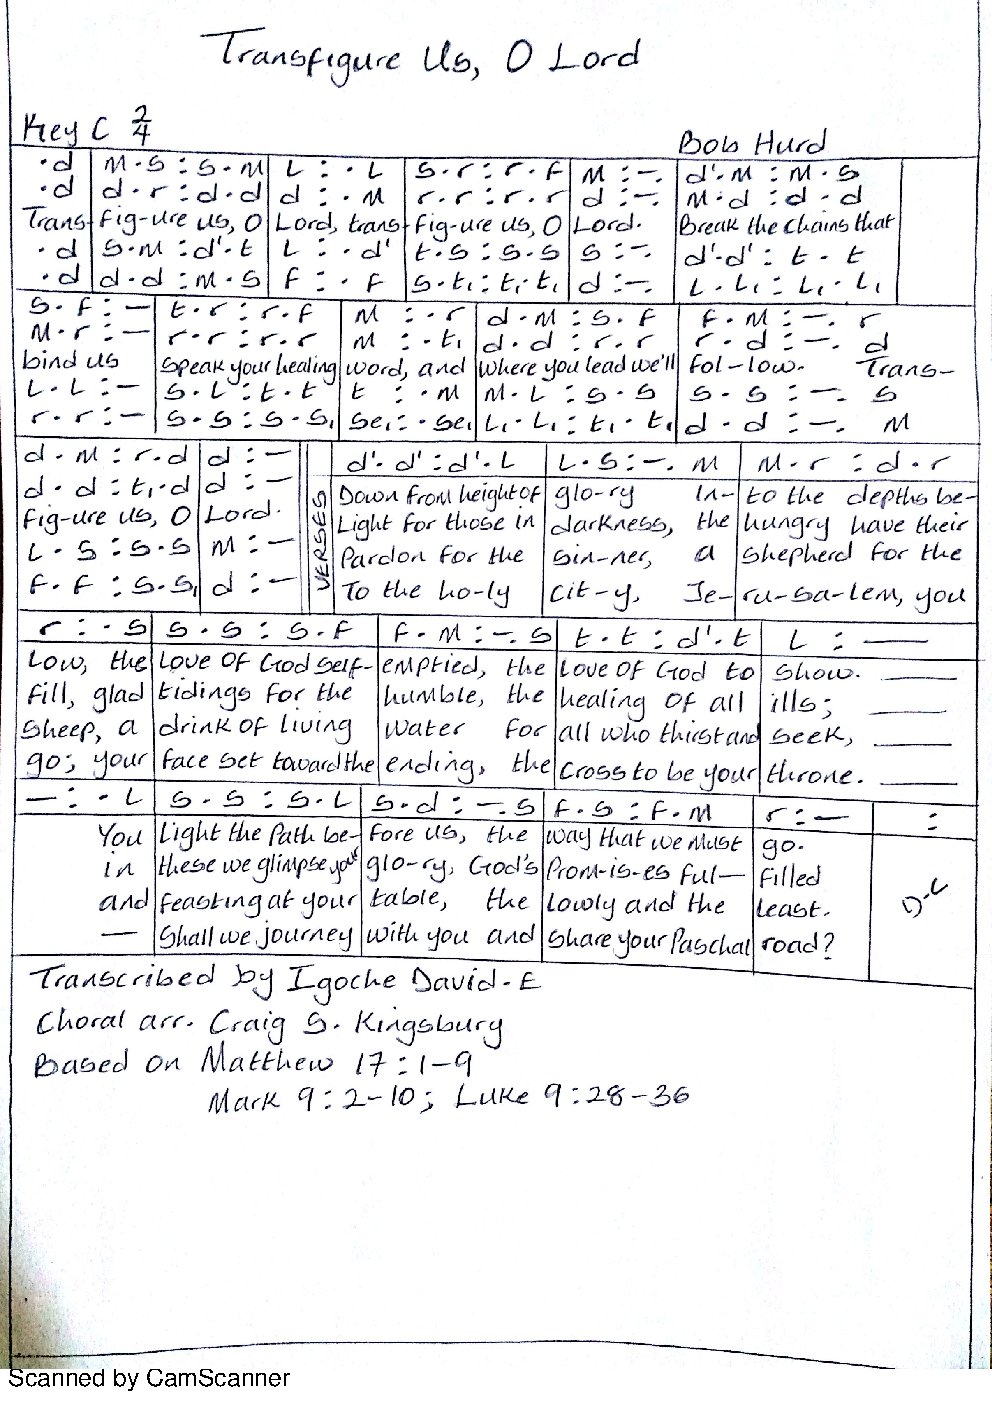 Transfigure Us, O Lord
Key C 2/4
Bob Hurd
.d | M.S : S.M | L : .L | S.r : r.f | M : -. | d'.M : M.S
.d | d.r : d.d | d : .M | r.r : r.r | d : -. | M.d : d.d
Trans- | fig-ure us, O | Lord, trans- | fig-ure us, O | Lord. | Break the chains that
.d | S.M : d'.t | L : .d' | t.S : S.S | S : -. | d'.d' : t.t
.d | d.d : M.S | F : .F | S.t₁ : t₁.t₁ | d : -. | L.L₁ : L₁.L₁
S.F : — | t.r : r.f | M : .r | d.M : S.F | F.M : -. r
M.r : — | r.r : r.r | M : .t₁ | d.d : r.r | r.d : -. d
bind us | Speak your healing | word, and | where you lead we'll | fol-low. Trans-
L.L : — | S.L : t.t | t : .M | M.L : S.S | S.S : -. S
r.r : — | S.S : S.S₁ | Se₁ : .Se₁ | L₁.L₁ : t₁.t₁ | d.d : -. M
d.M : r.d | d : — | d'.d' : d'.L | L.S : -. M | M.r : d.r
d.d : t₁.d | d : — | VERSES | Down from height of | glo-ry in- | to the depths be-
fig-ure us, O | Lord. | Light for those in | darkness, the | hungry have their
L.S : S.S | M : — | Pardon for the | sin-ner, a | shepherd for the
F.F : S.S₁ | d : — | To the ho-ly | cit-y, Je- | ru-sa-lem, you
r : .S | S.S : S.F | F.M : -. S | t.t : d'.t | L : —
Low, the | love of God self- | emptied, the | love of God to | show. —
fill, glad | tidings for the | humble, the | healing of all | ills; —
sheep, a | drink of living | water for | all who thirst and | seek, —
go; your | face set toward the | ending, the | cross to be your | throne. —
— : .L | S.S : S.L | S.d : -. S | F.S : F.M | r : — | :
You | light the path be- | fore us, the | way that we must | go.
in | these we glimpse your | glo-ry, God's | Prom-is-es ful- | filled
and | feasting at your | table, the | lowly and the | least. | D.C
— | Shall we journey | with you and | share your Paschal | road?
Transcribed by Igoche David-E
Choral arr. Craig S. Kingsbury
Based on Matthew 17:1-9
Mark 9:2-10; Luke 9:28-36
Scanned by CamScanner